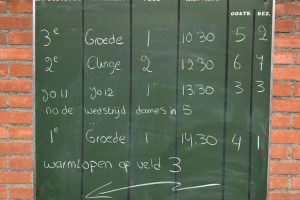 OOSTB. BEZ.
3e Groede 1 10.30 5 2
2e Clinge 2 12.30 6 7
Jo11 Jo12 1 13.30 3 3
na de wedstrijd dames in 5
1e Groede 1 14.30 4 1
warmlopen op veld 3